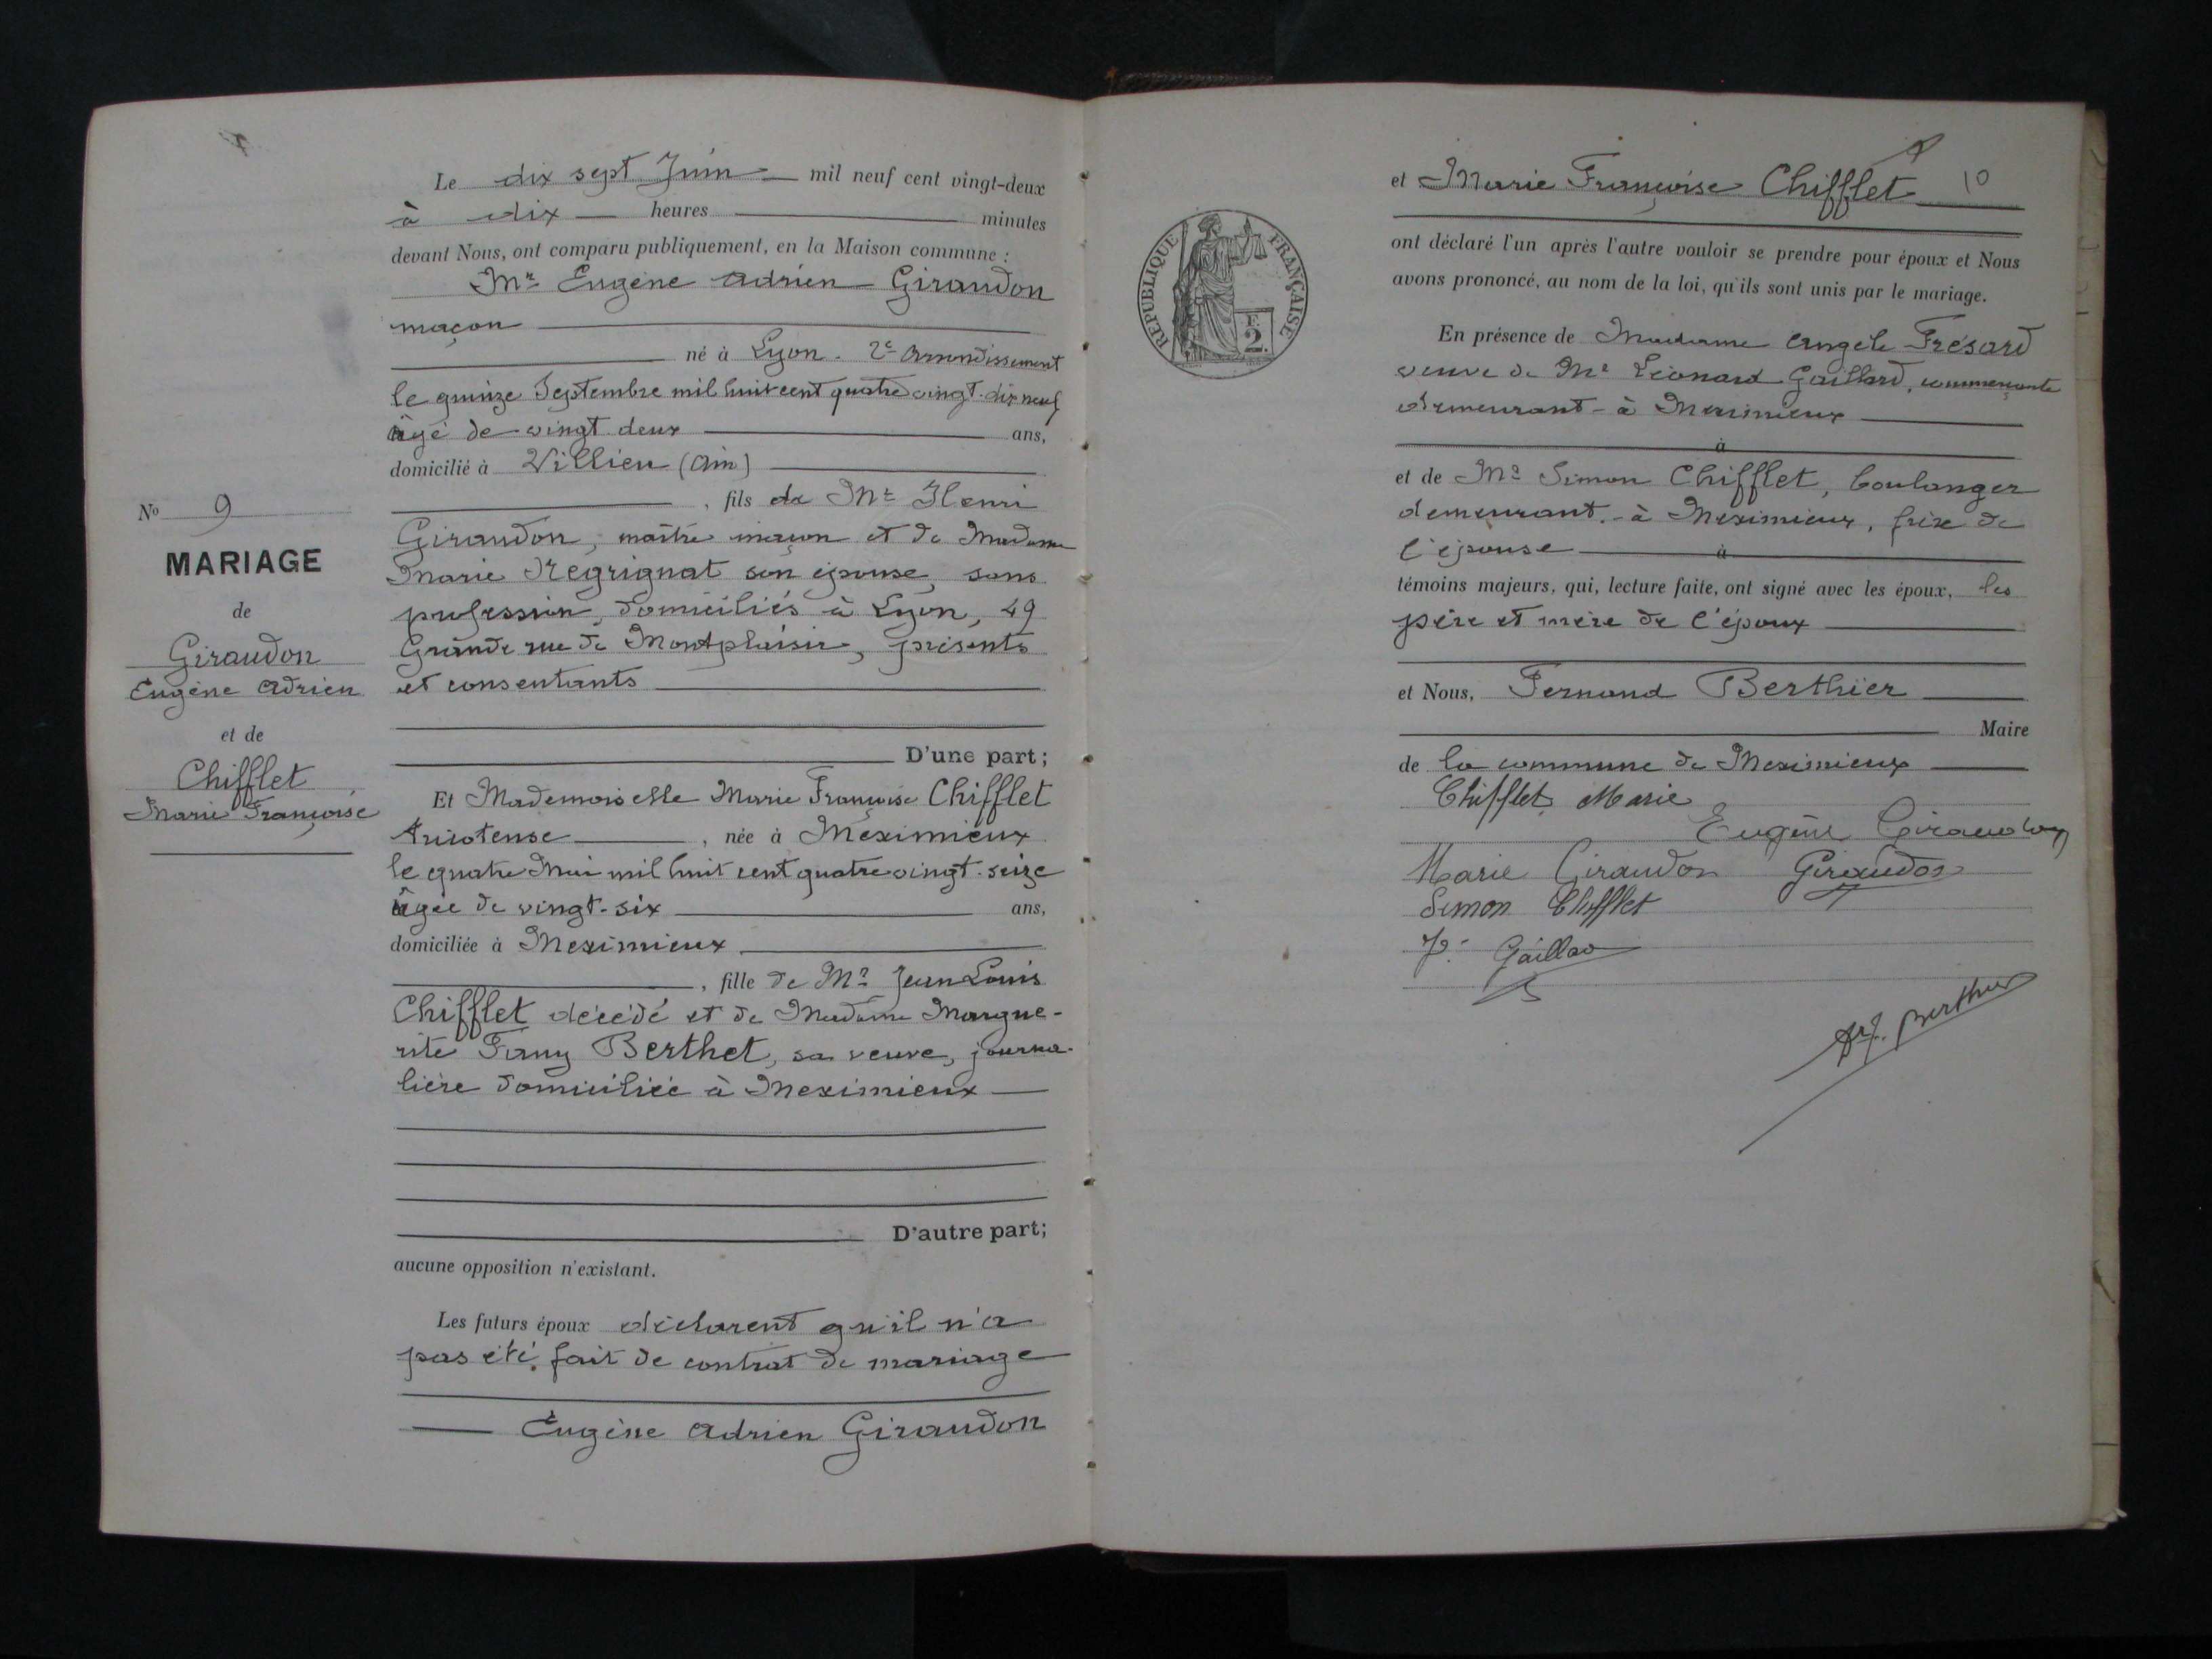 Le dix sept Juin mil neuf cent vingt-deux
à dix heures minutes
devant Nous, ont comparu publiquement, en la Maison commune :
Mr Eugène Adrien Giraudon
maçon
né à Lyon. 2e Arrondissement
le quinze Septembre mil huit cent quatre vingt-dix neuf
âgé de vingt deux ans,
domicilié à Villieu (Ain)
, fils de Mr Henri
Giraudon, maître maçon et de Madame
Marie son épouse, sans
profession, domiciliés à Lyon, 49
Grande rue de Montplaisir, présents
et consentants
D'une part;
Et Mademoiselle Marie Françoise Chifflet
tricoteuse, née à Meximieux
le quatre Mai mil huit cent quatre vingt-seize
âgée de vingt-six ans,
domiciliée à Meximieux
, fille de Mr Jean Louis
Chifflet décédé et de Madame Margue-
rite Fany Berthet, sa veuve, journa-
lière domiciliée à Meximieux
D'autre part;
aucune opposition n'existant.
Les futurs époux déclarent qu'il n'a
pas été fait de contrat de mariage
Eugène Adrien Giraudon
No 9
MARIAGE
de
Giraudon
Eugène Adrien
et de
Chifflet
Marie Françoise
RÉPUBLIQUE FRANÇAISE
F.
2.
et Marie Françoise Chifflet 10
ont déclaré l'un après l'autre vouloir se prendre pour époux et Nous
avons prononcé, au nom de la loi, qu'ils sont unis par le mariage.
En présence de Madame Angèle Frésard
veuve de Mr Léonard Gaillard, commerçante
demeurant à Meximieux
à
et de Mr Simon Chifflet, boulanger
demeurant à Meximieux, frère de
l'épouse à
témoins majeurs, qui, lecture faite, ont signé avec les époux, les
père et mère de l'époux
et Nous, Fernand Berthier
Maire
de la commune de Meximieux
Chifflet Marie
Eugène Giraudon
Marie Giraudon Giraudon
Simon Chifflet
Gaillard
Berthier